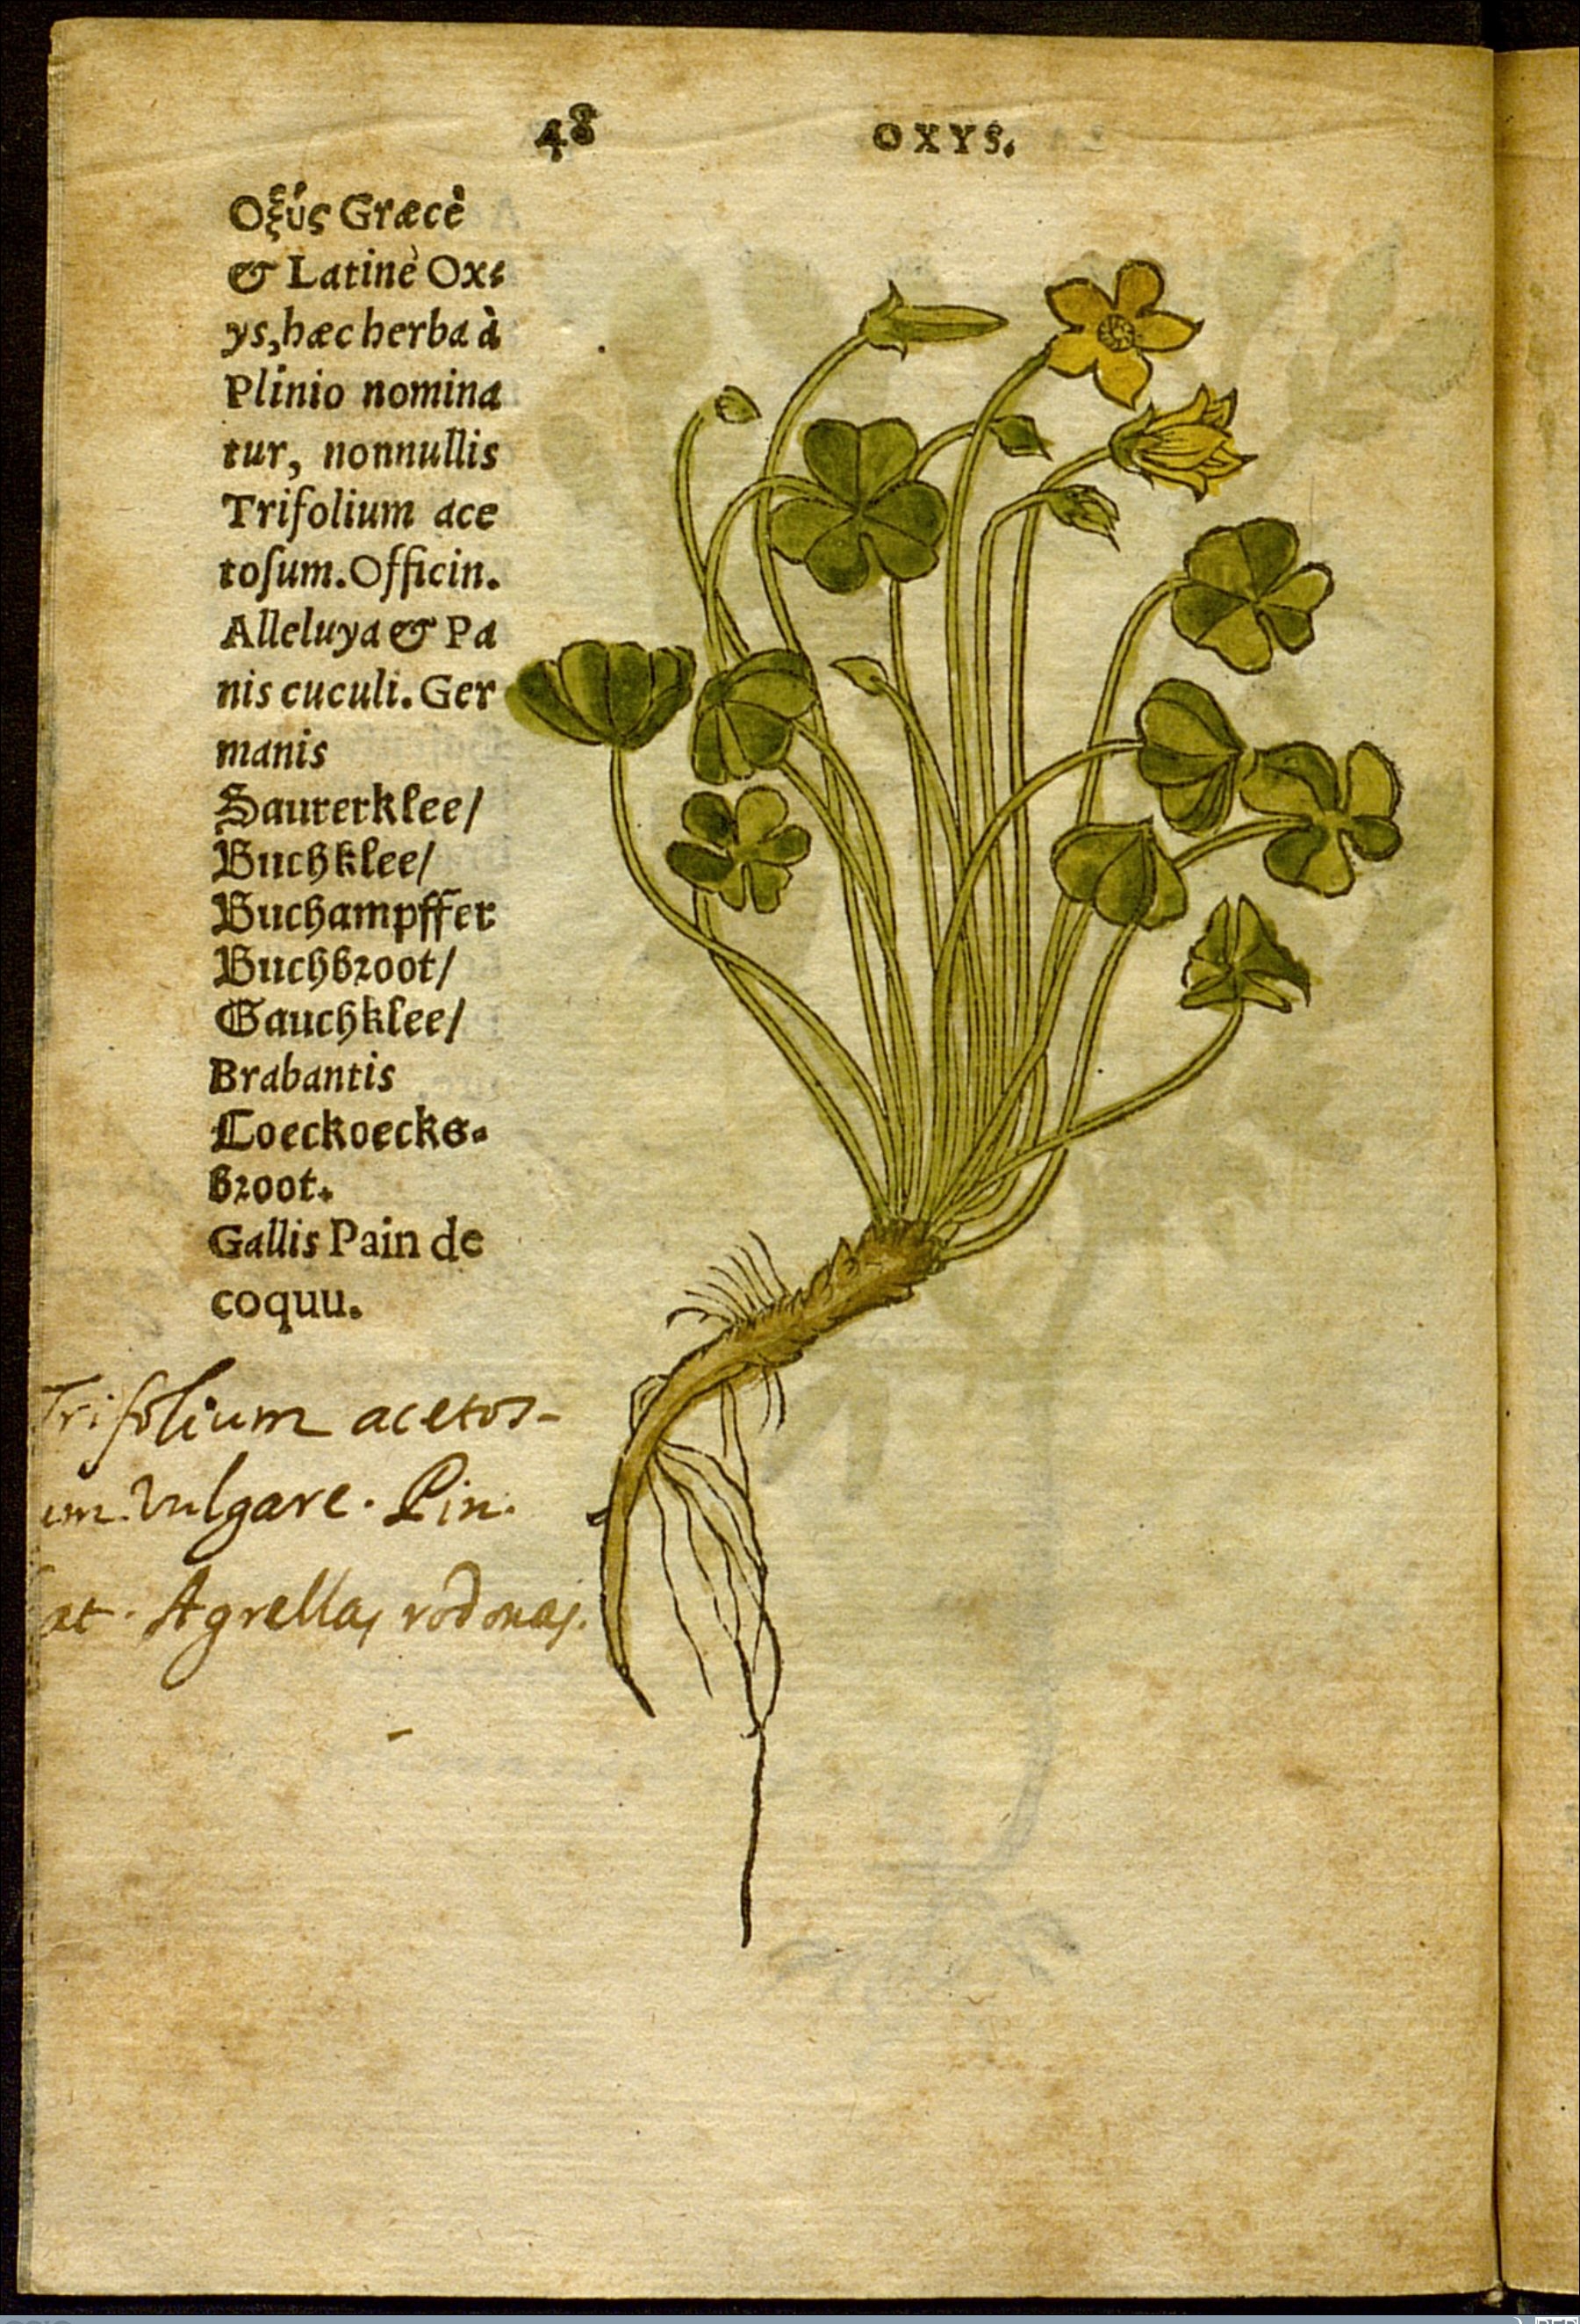 48 OXYS.
Οξύς Græcè
& Latinè Ox⸗
ys, hæc herba à
Plinio nomina
tur, nonnullis
Trifolium ace
toſum. Officin.
Alleluya & Pa
nis cuculi. Ger
manis
Saurerklee/
Buchklee/
Buchampffer
Buchbꝛoot/
Gauchklee/
Brabantis
Coeckoecks⸗
bꝛoot.
Gallis Pain de
coquu.
Trifolium acetos-
um. Vulgare. Pin.
Agrellas